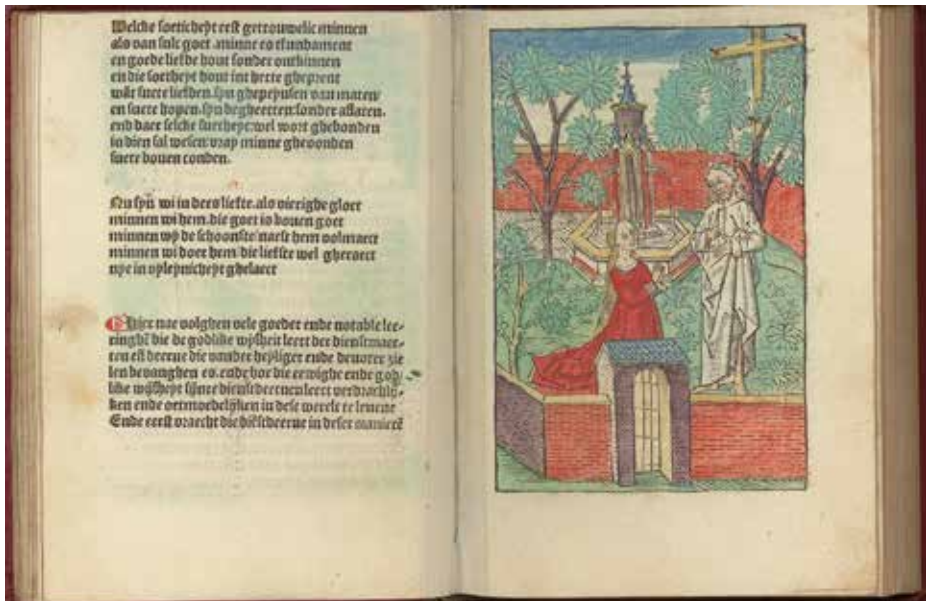 Welcke soeticheyt eest getrouwelic minnen
als van sulc goet minne es tfundament
en goede liefde hout sonder ontbinnen
en die soetheyt hout int herte gheprent
wāt suete liefden. syn ghepeynsen van maten
en suete hopen. syn begheerten sonder aflaten.
end daer selcke suetheyt wel wort ghebonden
in dien sal wesen vray minne ghevonden
suete boven conden.
Nu syn wi in dees liefste als vierighe gloet
minnen wi hem. die goet is boven goet
minnen wy de schoonste naest hem volmaect
minnen wi doer hem die liefste wel gheraect
nye in vyleynicheyt ghelaect
Hier nae volghen vele goeder ende notable lee-
ringhē die de godlike wysheit leert der dienstmaer-
ten eñ deerne die vander heyliger ende devoter zie
len bevanghen es. ende hoe die ewighe ende god-
like wysheyt synre dienstdeernen leert verdrachlij-
ken ende oetmoedelijken in dese werelt te levene
Ende eerst vraecht die diēstdeerne in deser manierē